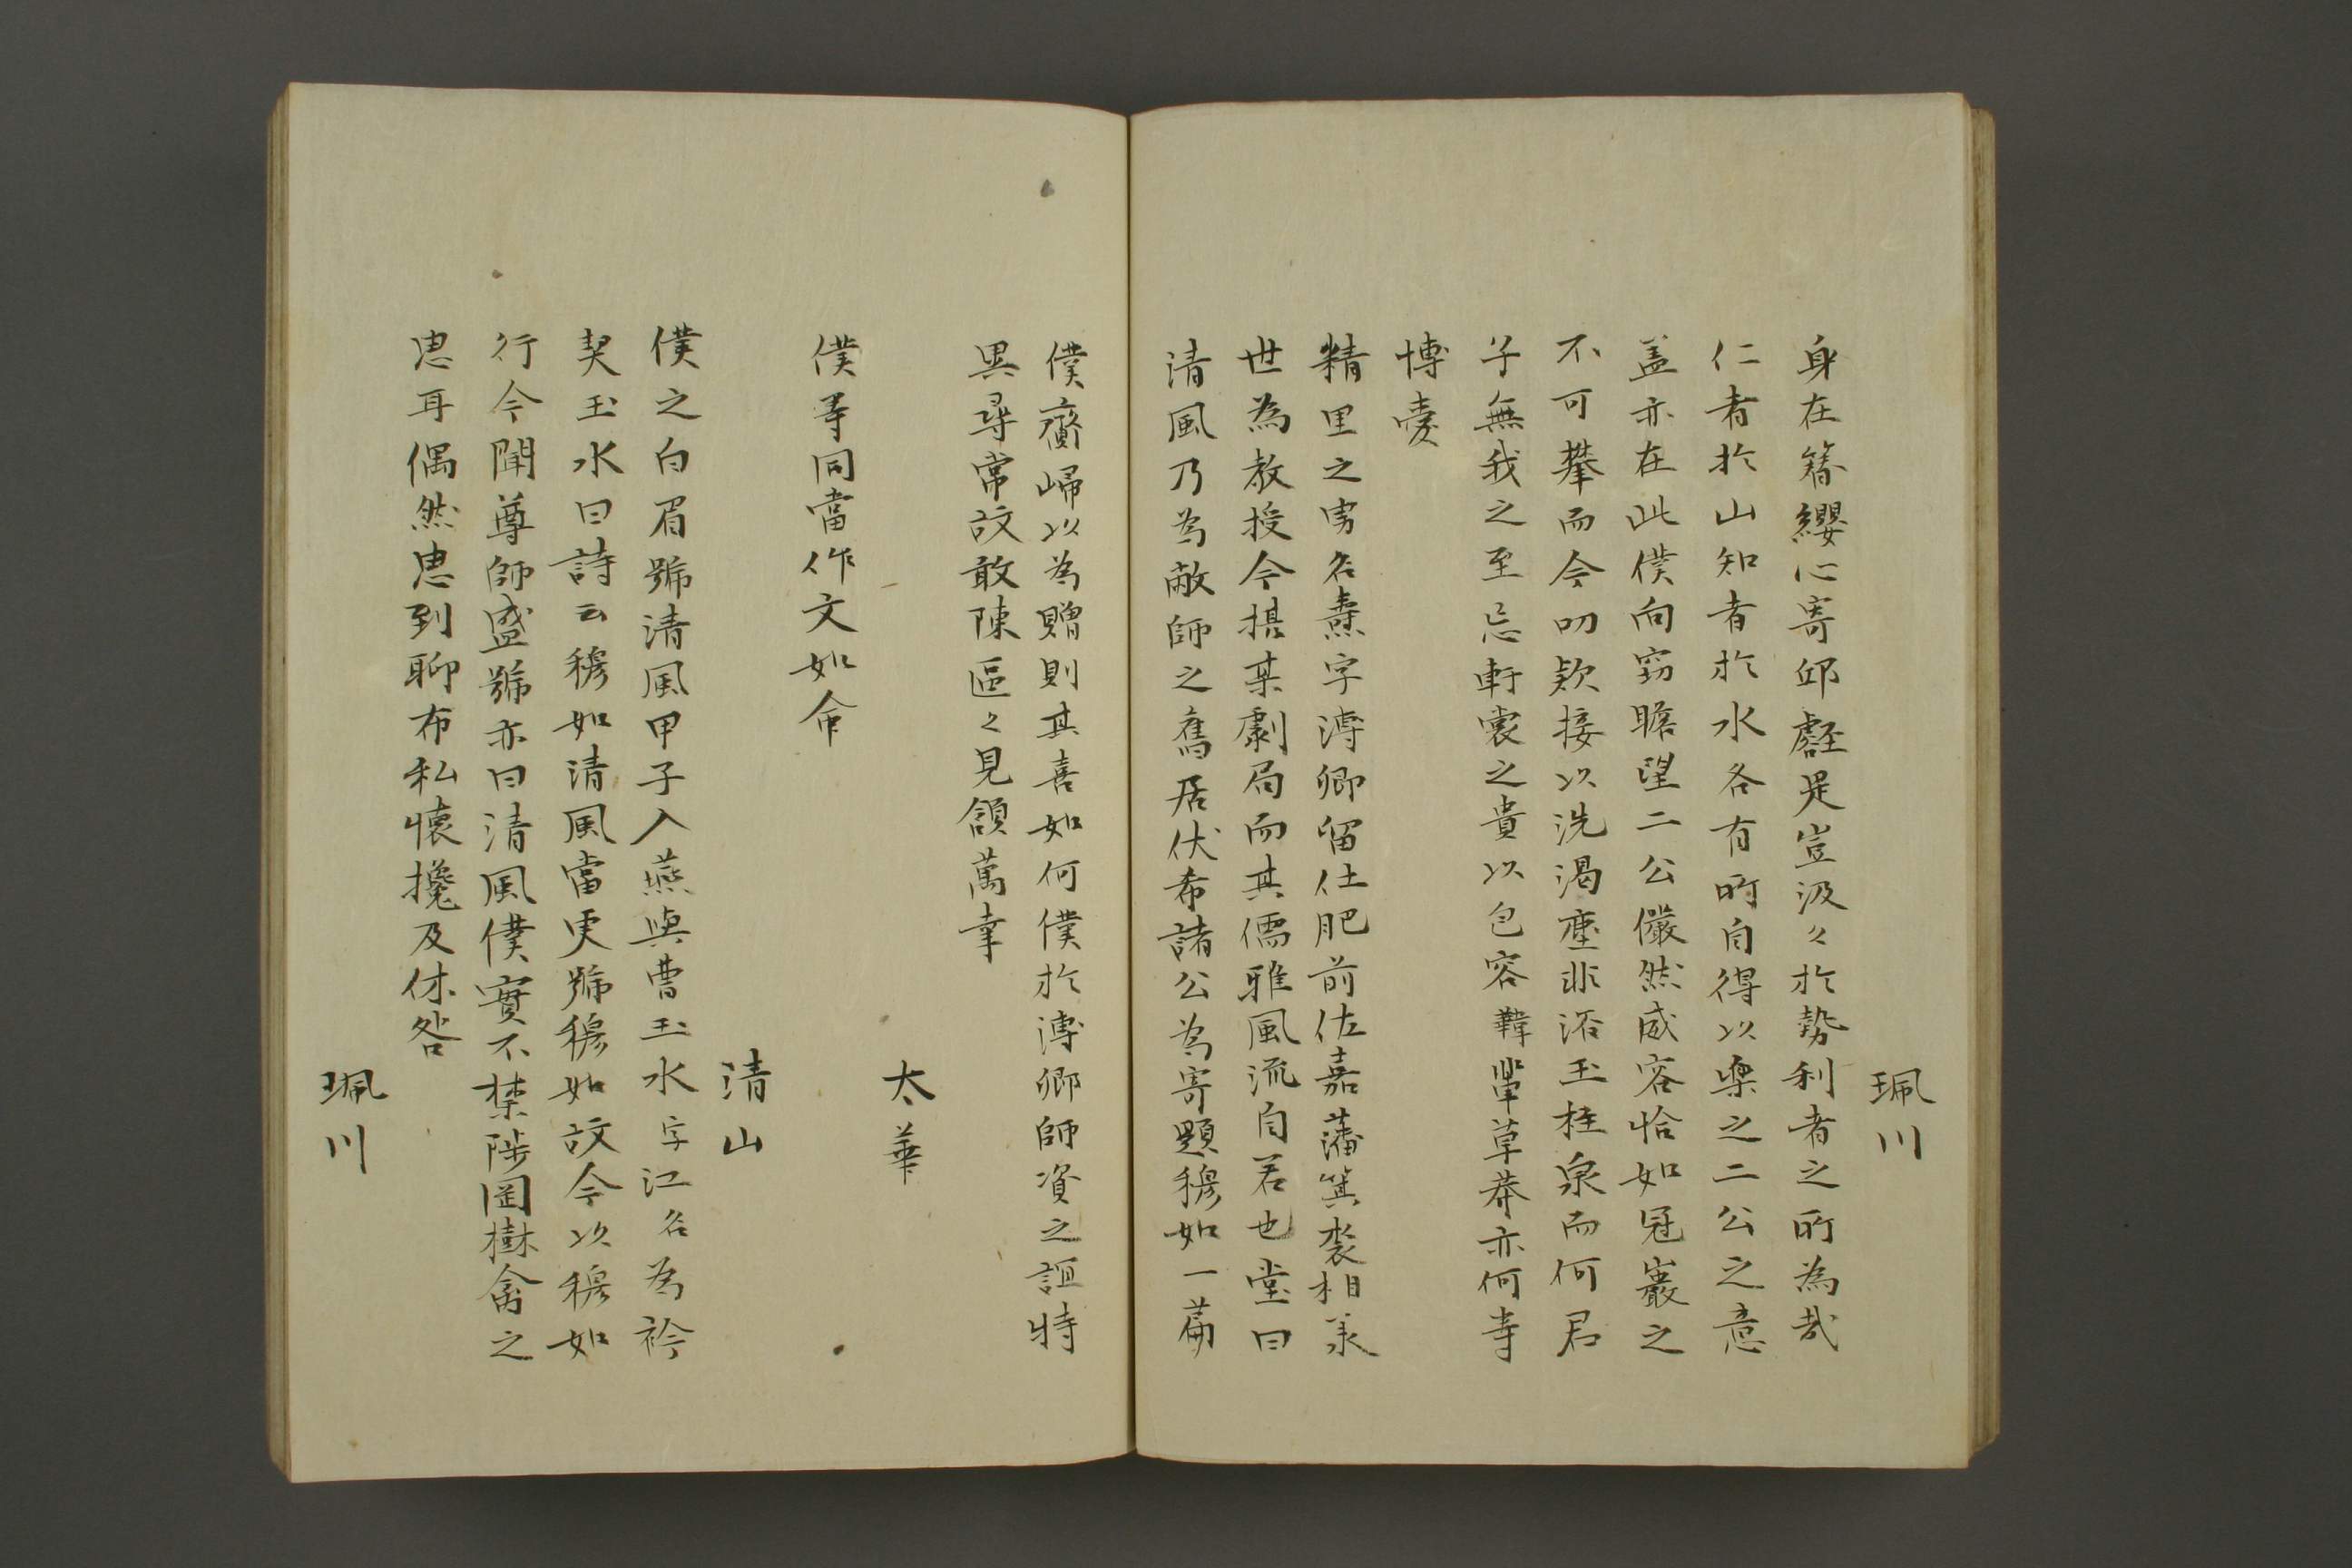 珮川
身在簪纓心寄邱壑是豈汲々於勢利者之所為哉
仁者於山知者於水各有所自得以樂之二公之意
盖亦在此僕向窈瞻望二公儼然威容恰如冠巖之
不可攀而今叨款接以洗渴塵非浴玉柱泉而何君
子無我之至忘軒裳之貴以包容韋革草莽亦何幸
博愛
精里之男名燾字溥卿留仕肥前佐嘉藩箕裘相承
世為教授今摂某劇局而其儒雅風流自若也堂曰
清風乃為敝師之舊居伏希諸公為寄題穆如一篇
僕齎歸以為贈則其喜如何僕於溥卿師資之誼特
異尋常故敢陳區々見頷萬幸
太華
僕等同當作文如命
清山
僕之白眉號清風甲子入燕與曹玉水字江名為衿
契玉水曰詩云穆如清風當更號穆如故今以穆如
行今聞尊師盛號亦曰清風僕實不禁陟岡樹禽之
思耳偶然思到聊布私懷攙及休咎
珮川